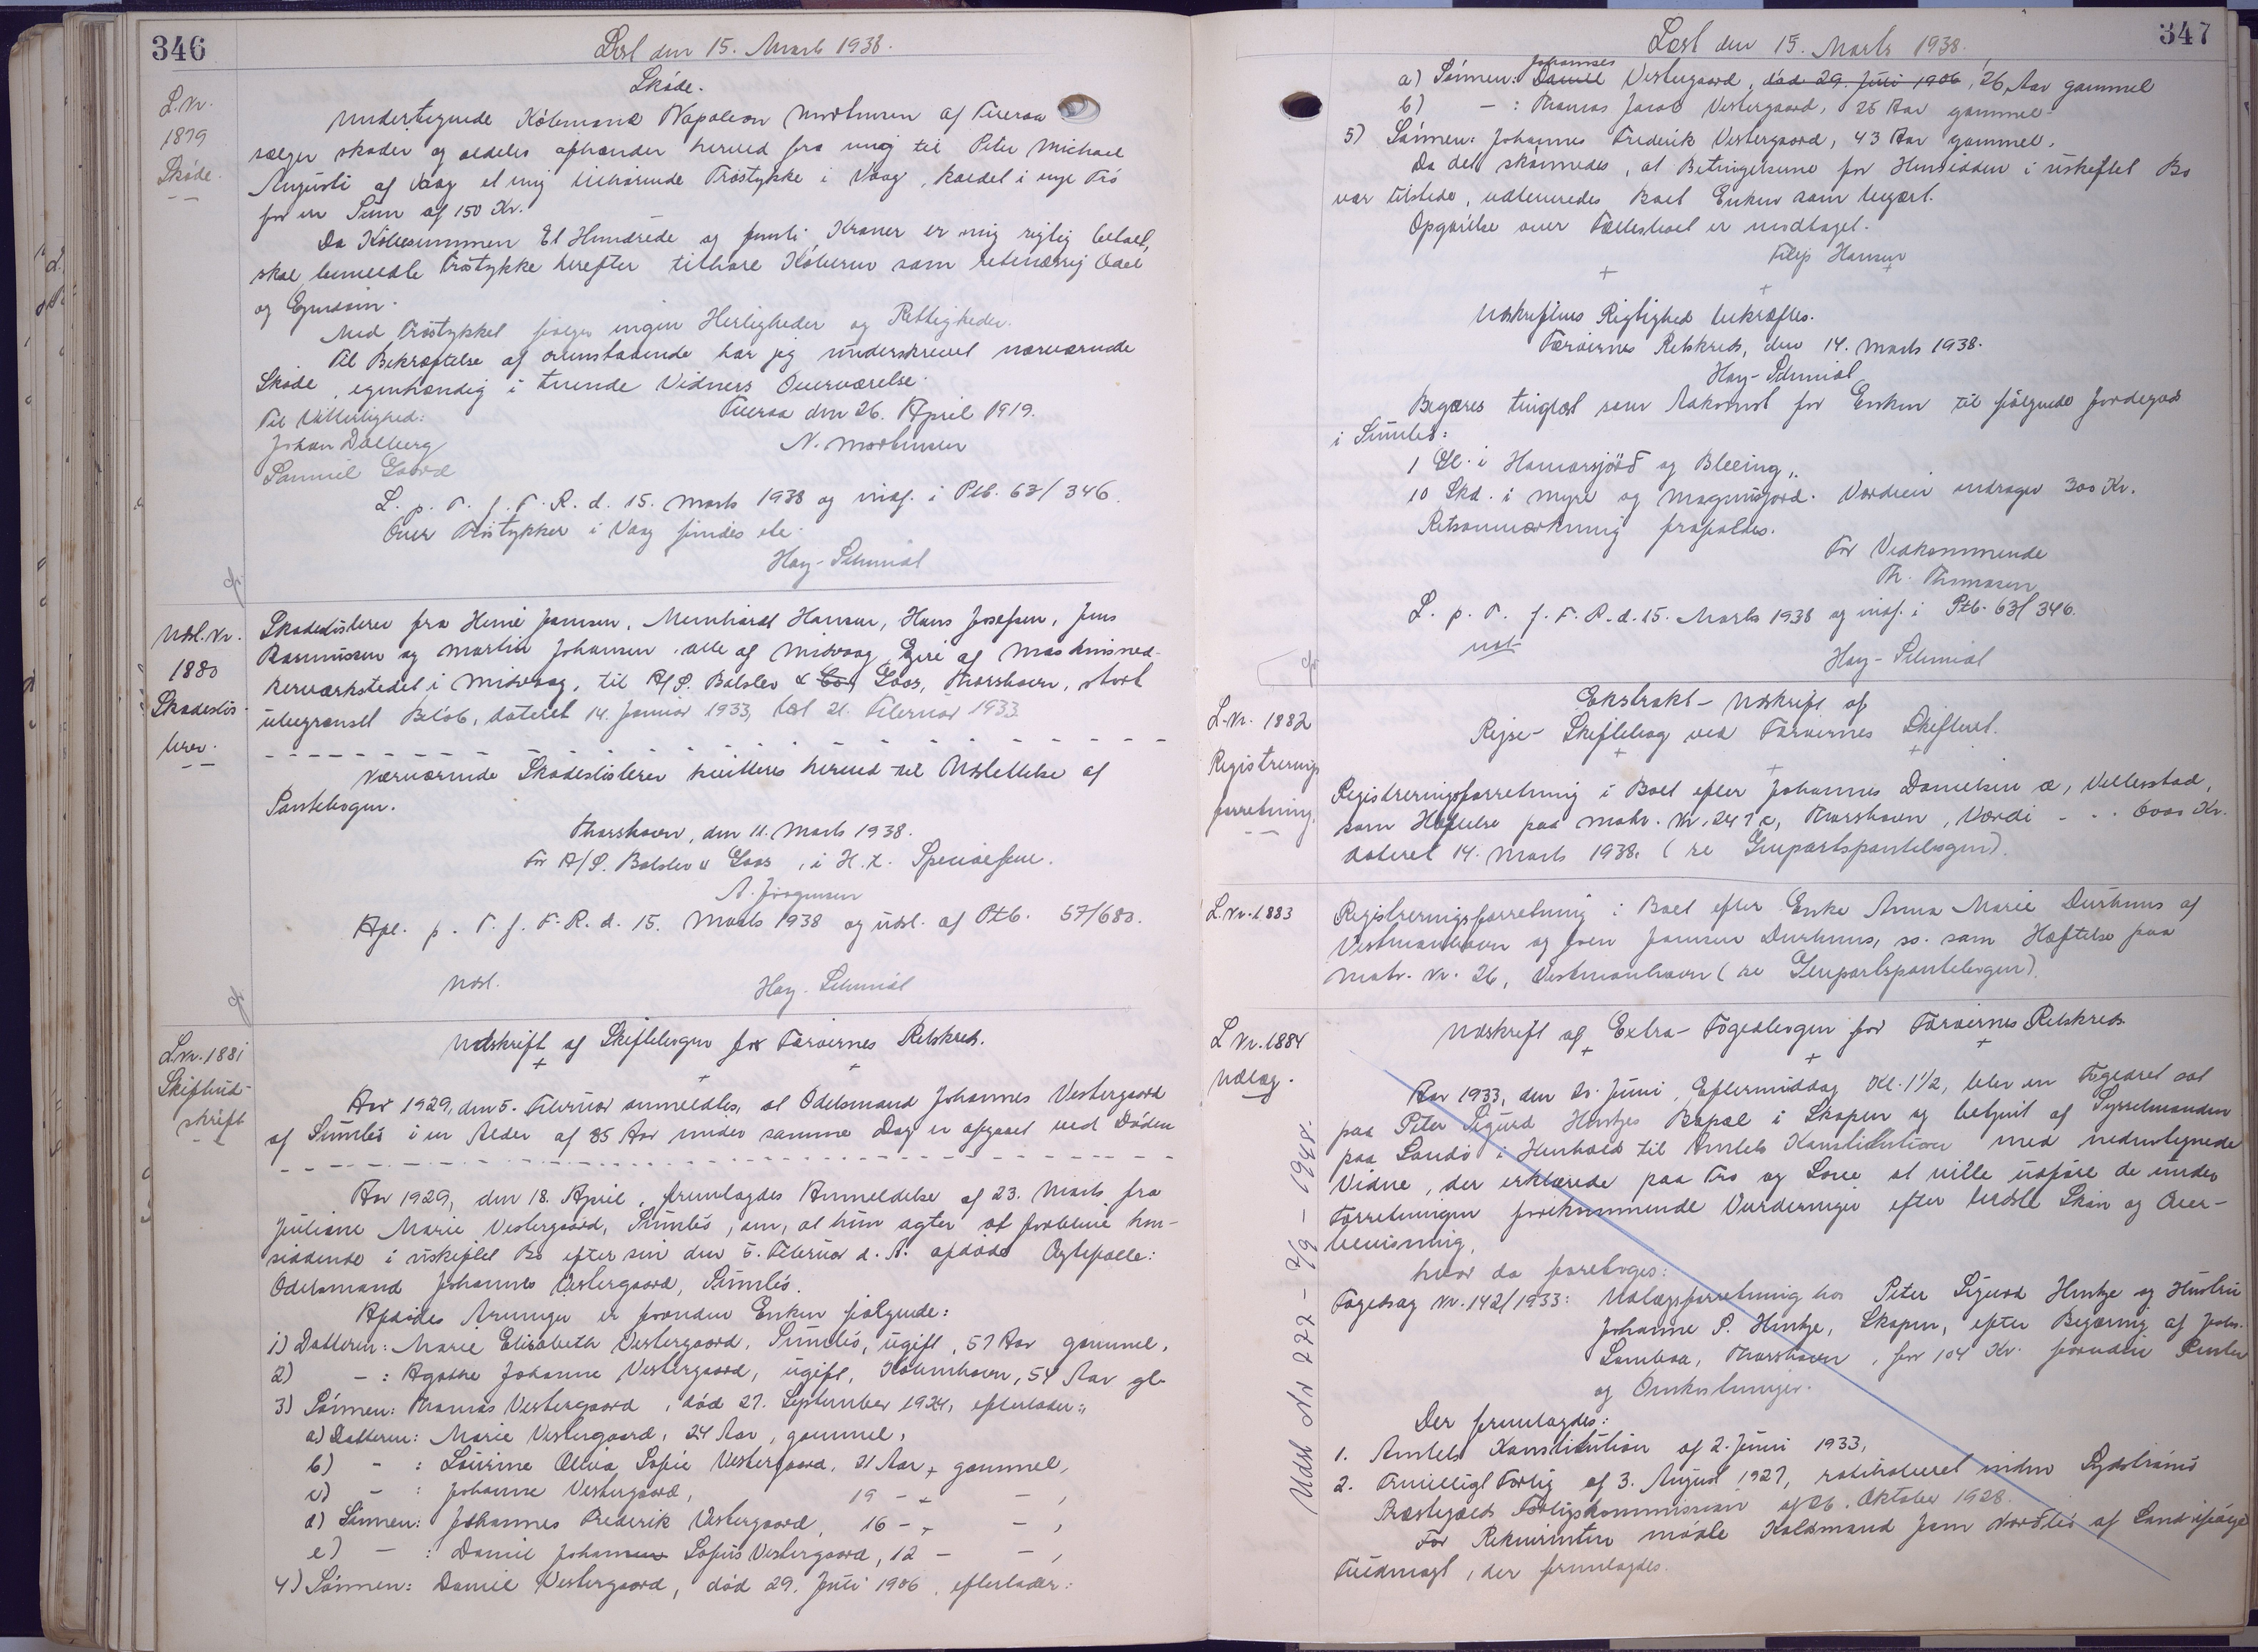 346
Læst den 15. Marts 1938.
L. Nr.
1879
Skøde.
Skøde.
Undertegnede Købmand Napoleon Mortensen af Tveraa
sælger skøder og aldeles afhænder herved fra mig til Peter Michael
Augusti af Vaag et mig tilhørende Tróstykke i Vaag, kaldet i nye Tró
for en Sum af 150 Kr.
Da Købesummen Et Hundrede og femti Kroner er mig rigtig betalt,
skal bemeldte Tróstykke herefter tilhøre Køberen som retmæssig Odel
og Ejendom.
Med Tróstykket følger ingen Herligheder og Rettigheder.
Til Bekræftelse af ovenstaaende har jeg underskrevet nærværende
Skøde, egenhændig i tvende Vidners Overværelse.
Tveraa den 26. April 1919.
Til Vitterlighed:
Johan Dalberg
N. Mortensen
Samuel Gaard
L. p. T. f. F. R. d. 15. Marts 1938 og indf. i Ptb. 63/346.
Over Tróstykker i Vaag findes ete.
Hay-Schmidt
Udsl. Nr.
1880
Skadesløs-
brev.
Skadesløsbrev fra Heine Joensen, Meinhardt Hansen, Hans Josefsen, Jens
Rasmussen og Martin Johansen, alle af Midvaag, Ejere af Maskinsned-
kerværkstedet i Midvaag, til A/S. Balslev & Co Goos, Thorshavn, stort
ubegrænset Beløb, dateret 14. Januar 1933, læst 21. Februar 1933.
Nærværende Skadesløsbrev kvitteres herved til Udslettelse af
Pantebogen.
Thorshavn, den 11. Marts 1938.
For A/S. Balslev & Goos, i H. t. Specialfuldm.
A. Jørgensen
Afl. p. T. f. F. R. d. 15. Marts 1938 og udsl. af Ptb. 57/680.
Udsl.
Hay-Schmidt
L. Nr. 1881
Skifteud-
skrift
Udskrift af Skiftebogen for Færøernes Retskreds.
Aar 1929, den 5. Februar anmeldtes, at Odelsmand Johannes Vestergaard
af Sumbø i en Alder af 85 Aar under samme Dag er afgaaet ved Døden
Aar 1929, den 18. April, fremlagdes Anmeldelse af 23. Marts fra
Juliane Marie Vestergaard, Sumbø, om, at hun agter at forblive hen-
siddende i uskiftet Bo efter sin den 5. Februar d. A. afdøde Ægtefælle:
Odelsmand Johannes Vestergaard, Sumbø.
Afdødes Arvinger er foruden Enken følgende:
1) Datteren: Marie Elisabeth Vestergaard, Sumbø, ugift, 57 Aar gammel,
2) - : Agathe Johanne Vestergaard, ugift, København, 54 Aar gl.
3) Sønnen: Thomas Vestergaard, død 27. September 1924, efterlader:
a) Datteren: Marie Vestergaard, 24 Aar, gammel,
b) - : Laurine Olivia Sofie Vestergaard, 21 Aar, gammel,
c) - : Johanne Vestergaard, 19 - - ,
d) Sønnen: Johannes Frederik Vestergaard, 16 - - ,
e) - : Daniel Johannes Sofus Vestergaard, 12 - - ,
4) Sønnen: Daniel Vestergaard, død 29. Juli 1906, efterlader:
347
Læst den 15. Marts 1938.
Johannes
a) Sønnen: Daniel Vestergaard, død 29. Juli 1906, 26 Aar gammel
b) - : Thomas Jacob Vestergaard, 25 Aar gammel.
5) Sønnen: Johannes Frederik Vestergaard, 43 Aar gammel.
Da det skønnedes, at Betingelserne for Hensidden i uskiftet Bo
var tilstede, udleveredes Boet Enken som begært.
Opgørelse over Fællesboet er modtaget.
Filip Hansen
Udskriftens Rigtighed bekræftes.
Færøernes Retskreds, den 14. Marts 1938.
Hay-Schmidt
Begæres tinglæst som Adkomst for Enken til følgende Jordegods
i Sumbø:
1 Gl. i Hamarsjörð og Bleeing,
10 Skd. i Myre og Magnusjord. Værdien andrager 300 Kr.
Retsanmærkning frafaldes.
For Vedkommende
Th. Thomasen
L. p. T. f. F. R. d. 15. Marts 1938 og indf. i Ptb. 63/346.
Hay-Schmidt
L. Nr. 1882
Registrerings
forretning.
Ekstrakt-Udskrift af
Rejse-Skiftebog ved Færøernes Skifteret.
Registreringsforretning i Boet efter Johannes Danielsen æ, Velbestad,
som Hæftelse paa Matr. Nr. 247 c, Thorshavn, Værdi - - . 6000 Kr.
dateret 14. Marts 1938. (se Genpartspantebogen).
L. Nr. 1883
Registreringsforretning i Boet efter Enke Anna Marie Durhuus af
Vestmanhavn og Sven Joensen Durhuus, ss. som Hæftelse paa
Matr. Nr. 26, Vestmanhavn (se Genpartspantebogen).
L Nr. 1884
Udlæg.
Udsl Nr 272 - 7/9 - 1948.
Udskrift af Extra-Fogedbogen for Færøernes Retskreds
Aar 1933, den 21. Juni, Eftermiddag Kl. 1 1/2, blev en Fogedret sat
paa Peter Sigurd Hentzes Bopæl i Skopen og betjent af Sysselmanden
paa Sandø i Henhold til Amtets Konstitution med nedentegnede
Vidne, der erklærede paa Tro og Love at ville udføre de under
Forretningen forekommende Vurderinger efter bedste Skøn og Over-
bevisning,
hvor da foretoges:
Fogedsag Nr. 142/1933: Udlægsforretning hos Peter Sigurd Hentze og Hustru
Johanne P. Hentze, Skopen, efter Begæring af Johs.
Lamhauge, Thorshavn, for 104 Kr. foruden Renter
og Omkostninger.
Der fremlagdes:
1. Amtets Konstitution af 2. Juni 1933,
2. Frivilligt Forlig af 3. August 1927, ratihaberet inden Sydstrømø
Præstegælds Forligskommission af 26. Oktober 1928.
For Rekvirenten mødte Kaldsmand Joen Nordlió af Sand ifølge
Fuldmagt, der fremlagdes.